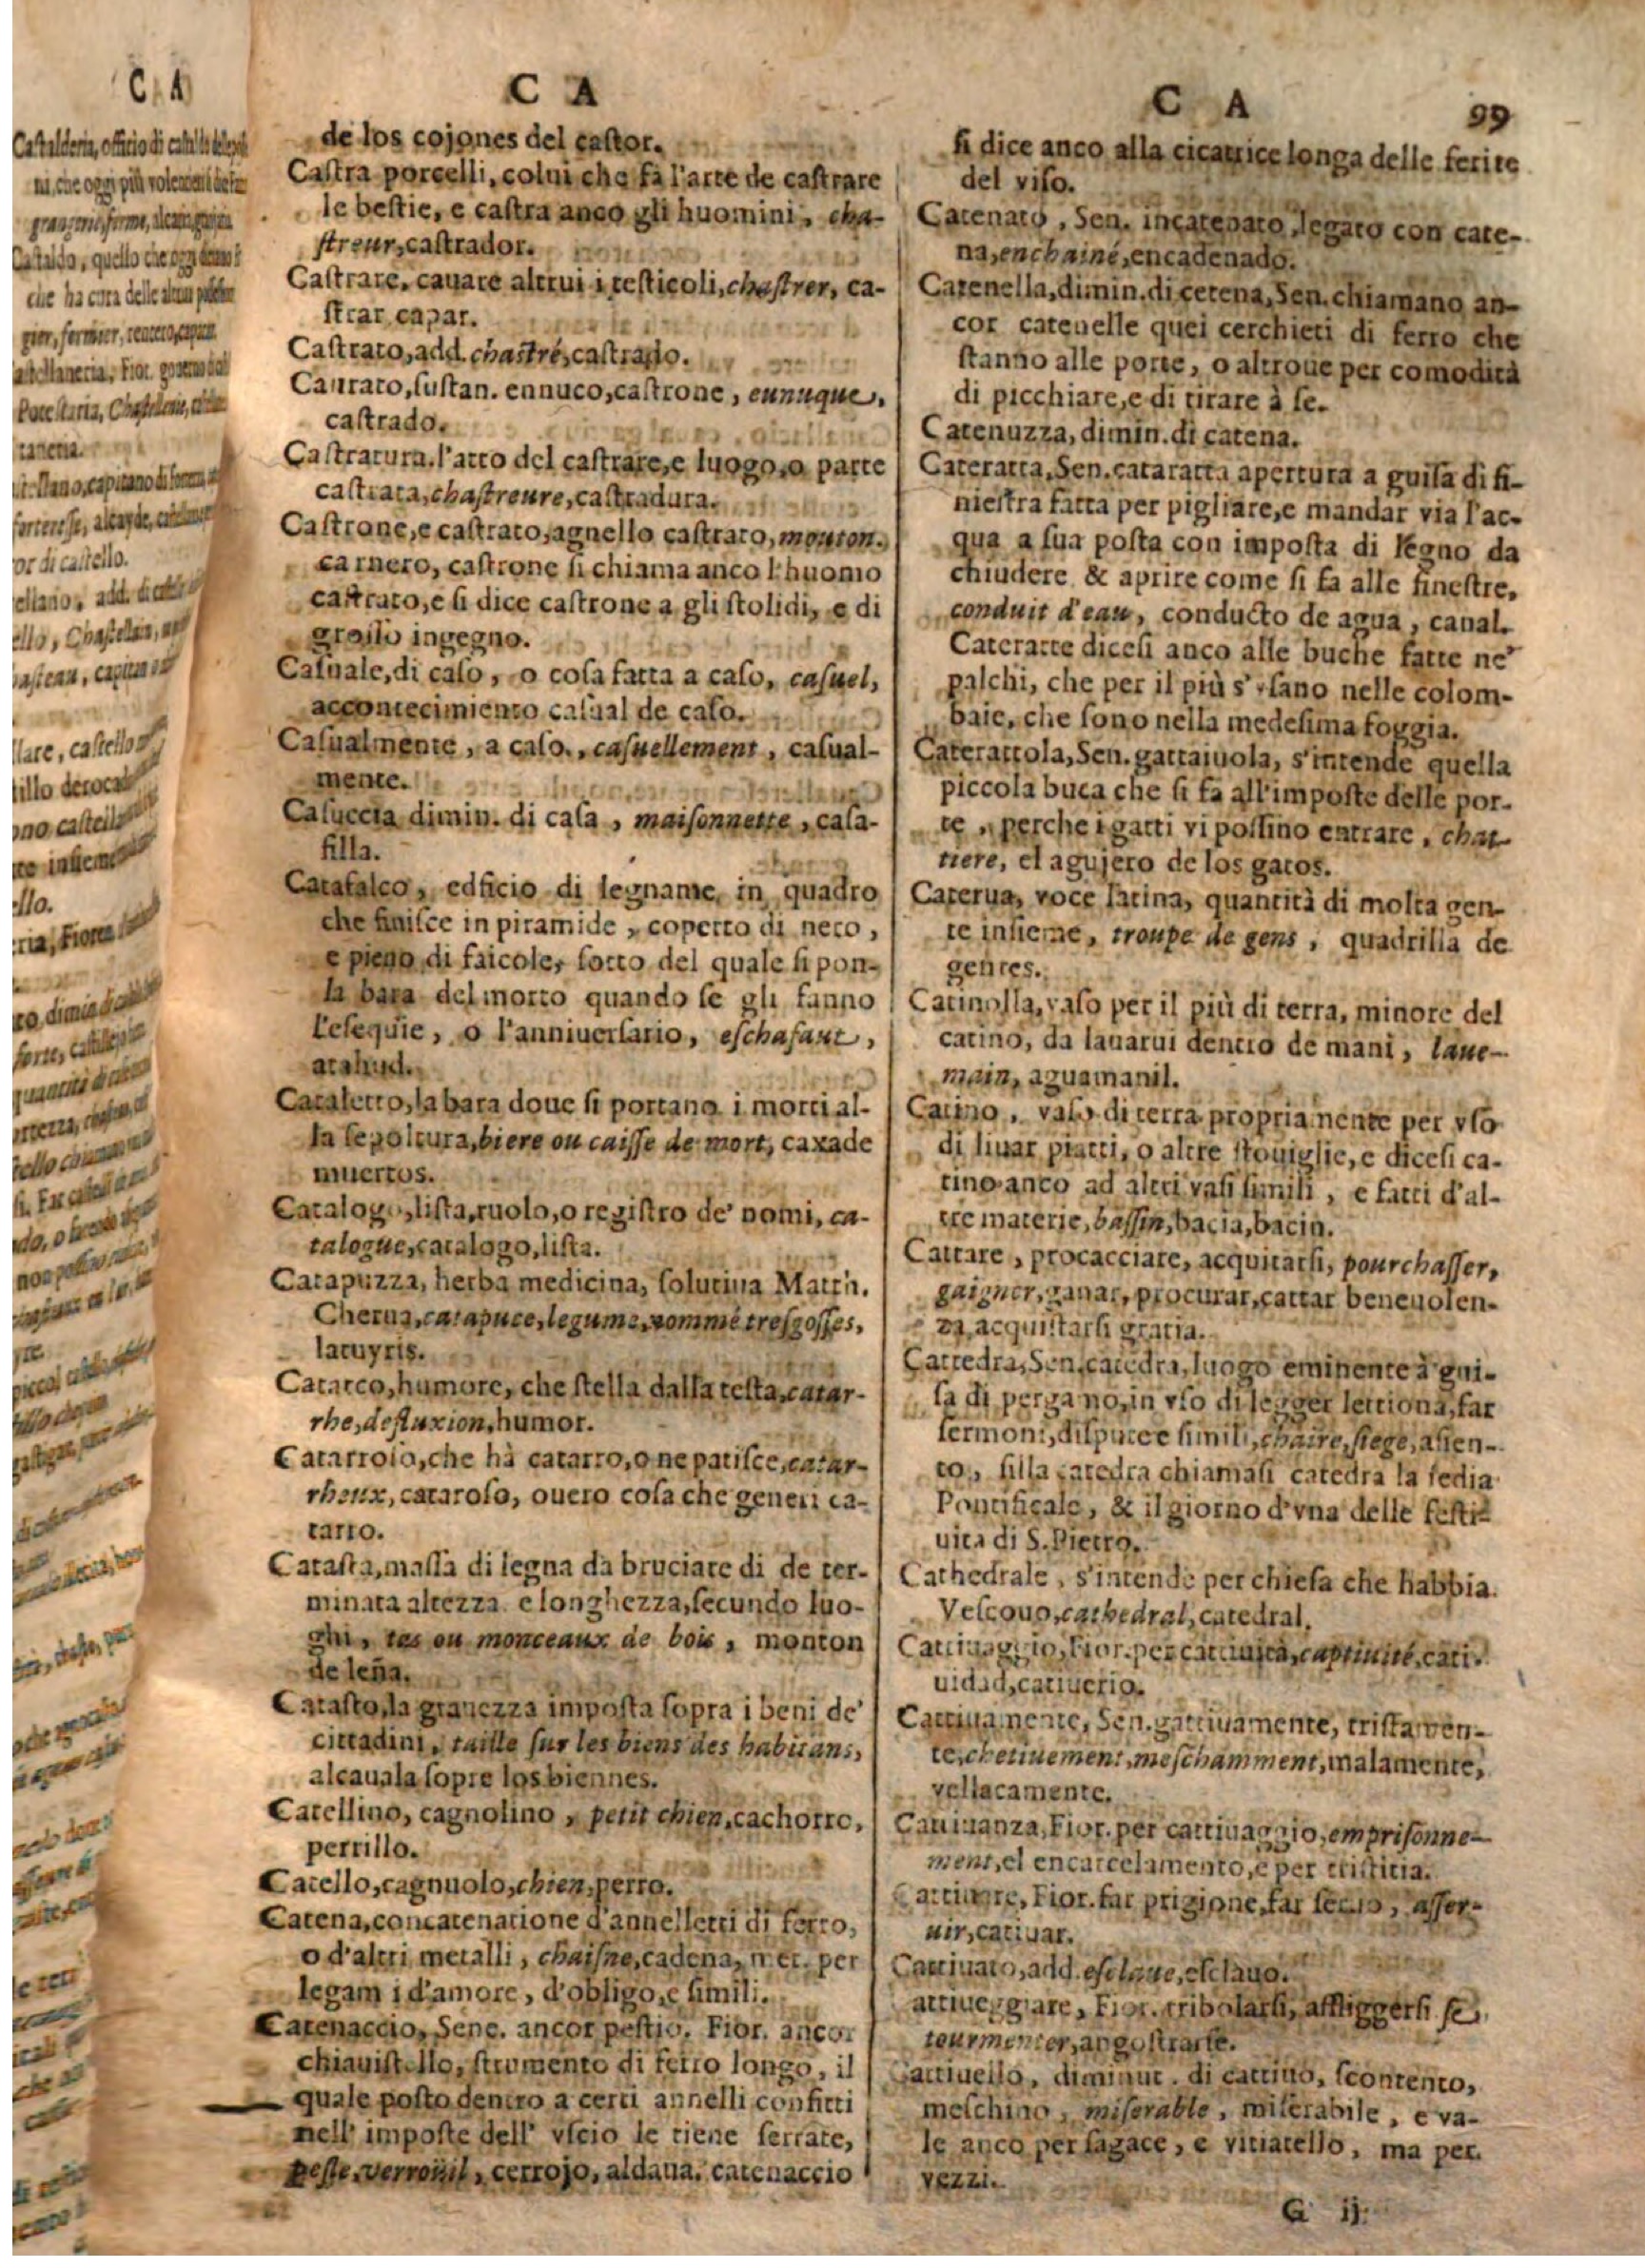 C A
C A
de los cojones del caſtor.
Caſtra porcelli, colui che fà l'arte de caſtrare
le beſtie, e caſtra anco gli huomini, cha-
ſtreur, caſtrador.
Caſtrare, cauare altrui i teſticoli, chaſtrer, ca-
ſtrar, capar.
Caſtrato, add. chaſtré, caſtrado.
Caurato, ſuſtan. ennuco, caſtrone, eunuque,
caſtrado.
Caſtratura. l'atto del caſtrare, e luogo, o parte
caſtrata, chaſtreure, caſtradura.
Caſtrone, e caſtrato, agnello caſtrato, mouton.
carnero, caſtrone ſi chiama anco l'huomo
caſtrato, e ſi dice caſtrone a gli ſtolidi, e di
groſſo ingegno.
Caſuale, di caſo, o coſa fatta a caſo, caſuel,
accontecimiento caſual de caſo.
Caſualmente, a caſo., caſuellement, caſual-
mente.
Caſuccia dimin. di caſa, maiſonnette, caſa-
filla.
Catafalco, edficio di legname, in quadro
che finiſce in piramide, coperto di nero,
e pieno di faicole, ſotto del quale ſi pon-
la bara del morto quando ſe gli fanno
l'eſequie, o l'anniuerſario, eſchafaut,
atahud.
Cataletto, la bara doue ſi portano i morti al-
la ſepoltura, biere ou caiſſe de mort, caxade
muertos.
Catalogo, liſta, ruolo, o regiſtro de' nomi, ca-
talogue, catalogo, liſta.
Catapuzza, herba medicina, ſolutiua Matth.
Cherua, catapuce, legume, nommé treſgoſſes,
latuyris.
Catarro, humore, che ſtella dalla teſta, catar-
rhe, defluxion, humor.
Catarroſo, che hà catarro, o ne patiſce, catar-
rheux, cataroſo, ouero coſa che generi ca-
tarro.
Cataſta, maſſa di legna da bruciare di de ter-
minata altezza e longhezza, ſecundo luo-
ghi, tas ou monceaux de bois, monton
de leña.
Cataſto, la grauezza impoſta ſopra i beni de'
cittadini, taille ſur les biens des habitans,
alcauala ſopre los biennes.
Catellino, cagnolino, petit chien, cachorro,
perrillo.
Catello, cagnuolo, chien, perro.
Catena, concatenatione d'annelletti di ferro,
o d'altri metalli, chaiſne, cadena, met. per
legami d'amore, d'obligo, e ſimili.
Catenaccio, Sene. ancor peſtio. Fior. ancor
chiauiſtello, ſtrumento di ferro longo, il
quale poſto dentro a certi annelli confitti
nell' impoſte dell' vſcio le tiene ſerrate,
peſle, verroüil, cerrojo, aldaua. catenaccio
C A 99
ſi dice anco alla cicatrice longa delle ferite
del viſo.
Catenato, Sen. incatenato, legato con cate-
na, enchainé, encadenado.
Catenella, dimin. di cetena, Sen. chiamano an-
cor catenelle quei cerchieti di ferro che
ſtanno alle porte, o altroue per comodità
di picchiare, e di tirare à ſe.
Catenuzza, dimin. di catena.
Cateratta, Sen. cataratta apertura a guiſa di fi-
nieſtra fatta per pigliare, e mandar via l'ac-
qua a ſua poſta con impoſta di legno da
chiudere & aprire come ſi fa alle fineſtre,
conduit d'eau, conducto de agua, canal.
Cateratte diceſi anco alle buche fatte ne'
palchi, che per il più s'vſano nelle colom-
baie, che ſono nella medeſima foggia.
Caterattola, Sen. gattaiuola, s'intende quella
piccola buca che ſi fa all'impoſte delle por-
te, perche i gatti vi poſſino entrare, chat-
tiere, el agujero de los gatos.
Caterua, voce latina, quantità di molta gen-
te inſieme, troupe de gens, quadrilla de
gentes.
Catinolla, vaſo per il più di terra, minore del
catino, da lauarui dentro de mani, laue-
main, aguamanil.
Catino, vaſo di terra propriamente per vſo
di liuar piatti, o altre ſtouiglie, e diceſi ca-
tino anco ad altri vaſi ſimili, e fatti d'al-
tre materie, baſſin, bacia, bacin.
Cattare, procacciare, acquitarſi, pourchaſſer,
gaigner, ganar, procurar, cattar beneuolen-
za, acquiſtarſi gratia.
Cattedra, Sen. catedra, luogo eminente à gui-
ſa di pergamo, in vſo di legger lettioni, far
ſermoni, diſpute e ſimili, chaire, ſiege, aſien-
to, ſilla catedra chiamaſi catedra la ſedia
Pontificale, & il giorno d'vna delle feſti-
uità di S. Pietro.
Cathedrale, s'intende per chieſa che habbia
Veſcouo, cathedral, catedral.
Cattiuaggio, Fior. per cattiuità, captiuité, cati-
uidad, catiuerio.
Cattiuamente, Sen. gattiuamente, triſtamen-
te, chetiuement, meſchamment, malamente,
vellacamente.
Cattiuanza, Fior. per cattiuaggio, empriſonne-
ment, el encarcelamento, e per triſtitia.
Cattiuare, Fior. far prigione, far ſeruo, aſſer-
uir, catiuar.
Cattiuato, add. eſclaue, eſclauo.
attiueggiare, Fior. tribolarſi, affliggerſi ſe
tourmenter, angoſtrarſe.
attiuello, diminut. di cattiuo, ſcontento,
meſchino, miſerable, miſerabile, e va-
le anco per ſagace, e vitiatello, ma per
vezzi.
G ij